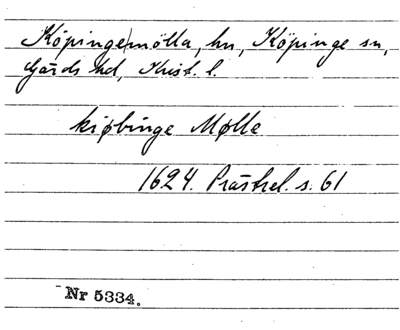 Köpingemölla, hn, Köpinge sn,
Gärds hd, Krist. l.
kiøbinge Mølle
1624. Prästrel. s. 61
Nr 5334.